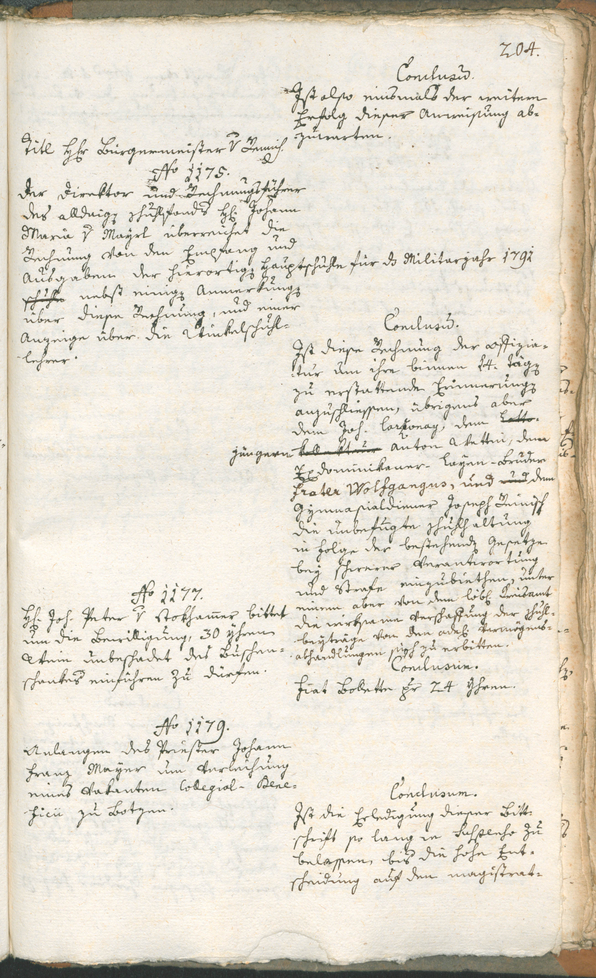 204.
Conclusū.
Ist also einsmals der weitere
Erfolg dieser Anweisung ab-
zuwarten.
Titl Hr Bürgermeister v
No 1175.
Der Direktor und Rechnungsführer
des alldaig Schulfonds H. Johann
Maria v Mayrl überreichet die
Rechnung von den Empfang und
Ausgaben der hierortig Hauptschule für ds Militarjahr 1791
Schule nebst einig Anmerkung
über diese Rechnung, und einer
Anzeige über die Winkelschul-
lehrer.
Conclusū.
Ist diese Rechnung der Offizia-
tur um ihre binnen 14. täg
zu erstattende Erinnerung
anzuschliessen, übrigens aber
dem Joh. dem
jüngern Anton dem
Exdominikaner-Layen-Bruder
Frater Wolfgangus, und und dem
Gymnasialdiener Joseph
die unbefugte Schulhaltung
in folge der bestehend Gesetze
bey schwerer Verantwortung
und Strafe einzubiethen, unter
einem aber von dem löbl.
die wirksame Verschaffung der Schul-
beyträge von den adel Vermögens-
abhandlungen sich zu erbitten.
No 1177.
H. Joh. Peter v Stokhamer bittet
um die Bewilligung, 30 Yhren
Wein unbeschadet des Buschen-
schankes einführen zu dürfen.
Conclusum.
Fiat Bolette pr 24 Yhren.
No 1179.
Anlangen des Priester Johann
Franz Mayer um Verleihung
eines vakanten Colegial-Bene-
ficii zu Botzen.
Conclusum.
Ist die Erledigung dieser Bitt-
schrift so lang in Suspenso zu
belassen, bis die hohe Ent-
scheidung auf den magistrat-